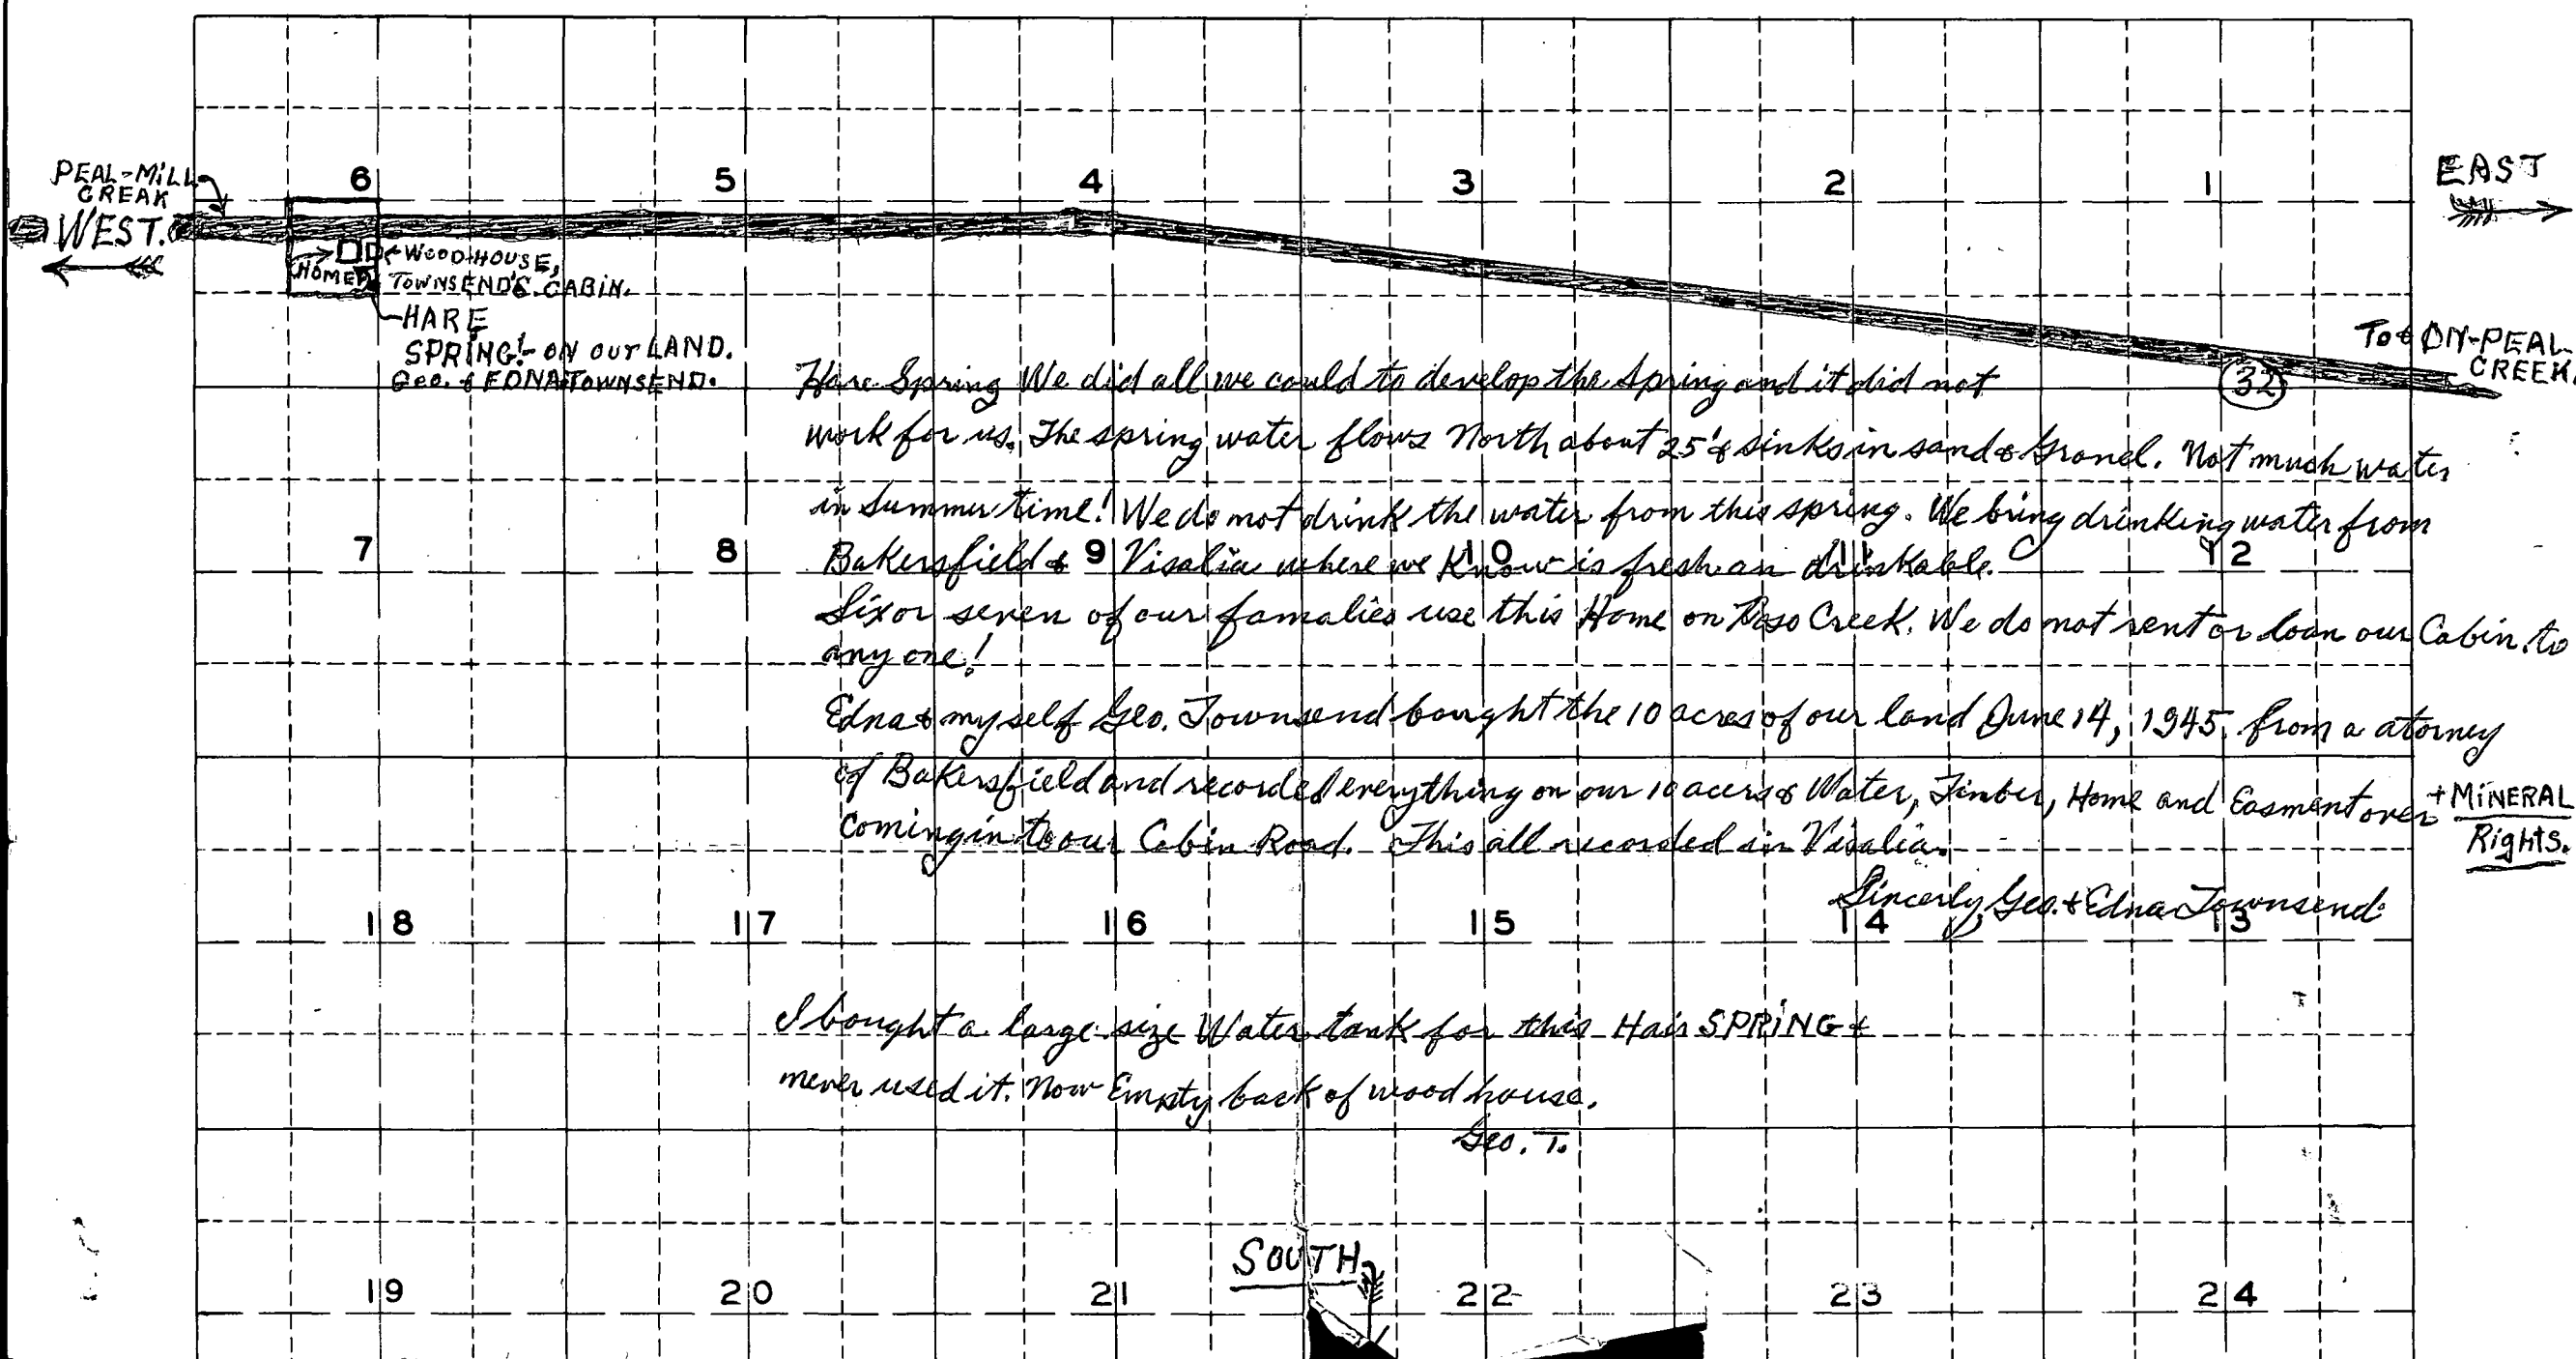 PEAL-MILL
CREAK
WEST.
6 5 4 3 2 1
EAST
HOME
WOODHOUSE,
TOWNSEND'S CABIN.
HARE
SPRING!- ON OUR LAND.
Geo. & EDNA TOWNSEND.
To & ON-PEAL
CREEK.
32
Hare Spring We did all we could to develop the Spring and it did not
work for us. The spring water flows North about 25' & sinks in sand & Gravel. Not much water
in Summer time! We do not drink the water from this spring. We bring drinking water from
7 8 9 10 11 12
Bakersfield & Visalia where we Know is fresh an drinkable.
Six or seven of our famalies use this Home on Poso Creek. We do not rent or loan our Cabin to
any one!
Edna & myself Geo. Townsend bought the 10 acres of our land June 14, 1945, from a atorney
of Bakersfield and recorded everything on our 10 acers & Water, Timber, Home and Easment over
+ MINERAL
Rights.
Coming in to our Cabin Road. This all recorded in Visalia.
Sincerly, Geo. & Edna Townsend.
18 17 16 15 14 13
I bought a large size Water tank for this Hair SPRING &
never used it. Now Empty back of wood house.
Geo. T.
SOUTH
19 20 21 22 23 24